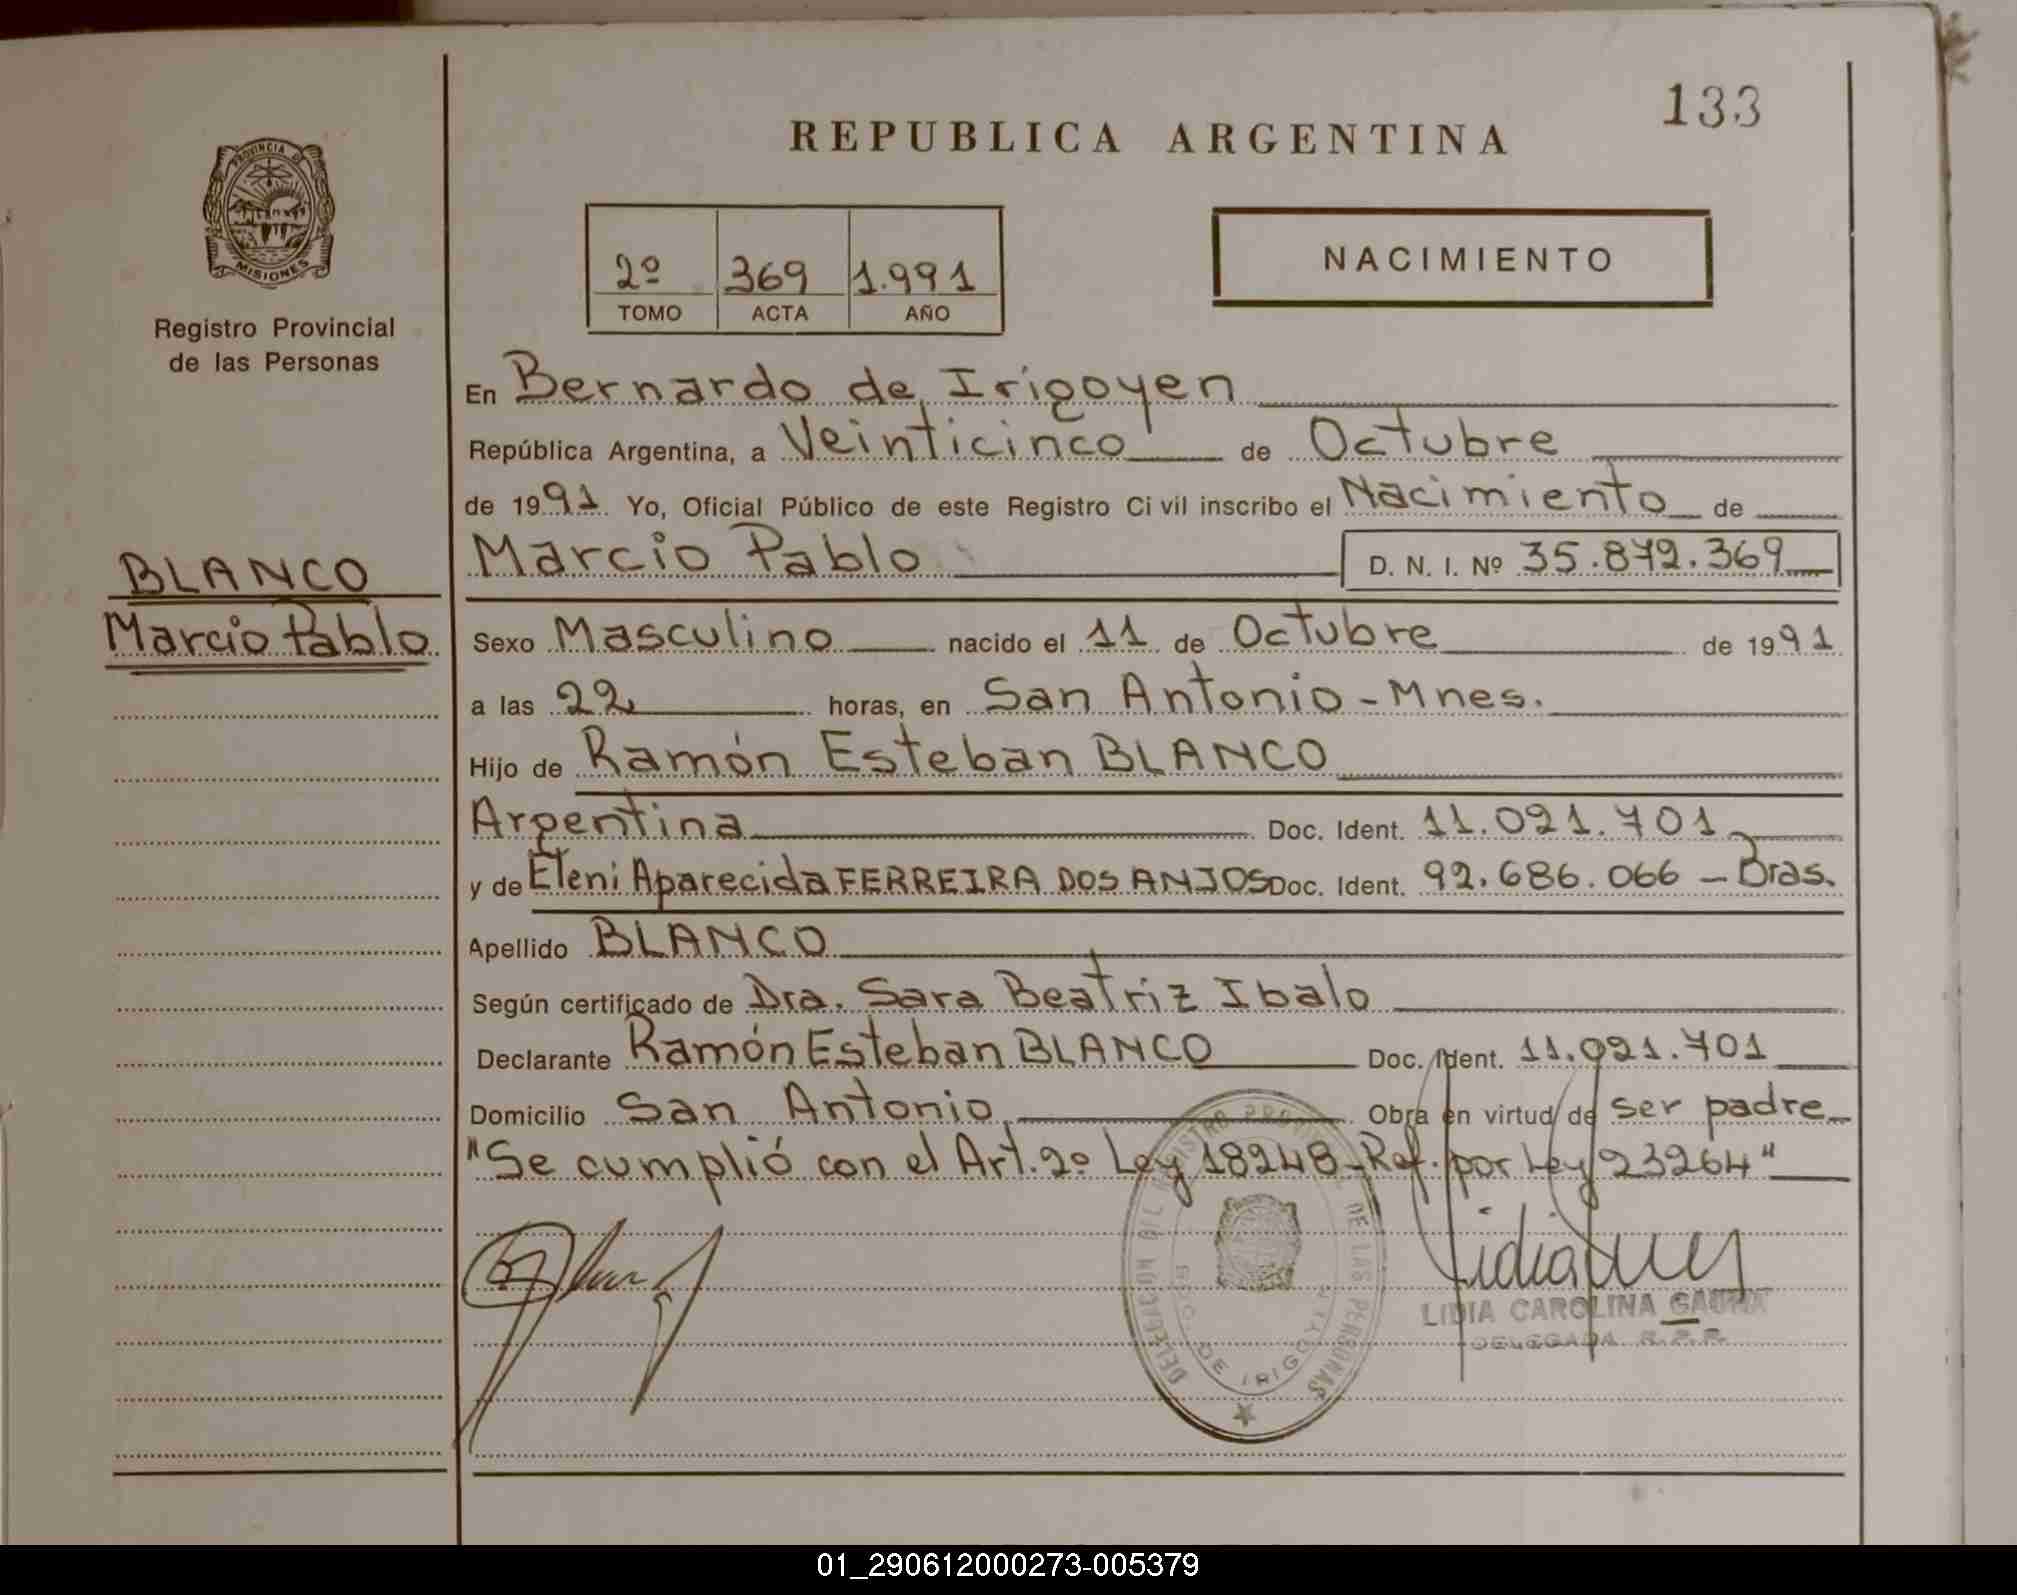 133
REPUBLICA ARGENTINA
PROVINCIA DE
MISIONES
Registro Provincial
de las Personas
2º 369 1.991
TOMO ACTA AÑO
NACIMIENTO
En Bernardo de Irigoyen
República Argentina, a Veinticinco de Octubre
de 1991 Yo, Oficial Público de este Registro Civil inscribo el Nacimiento de
BLANCO
Marcio Pablo
Marcio Pablo D. N. I. Nº 35.872.369
Sexo Masculino nacido el 11 de Octubre de 1991
a las 22 horas, en San Antonio - Mnes.
Hijo de Ramón Esteban BLANCO
Argentina Doc. Ident. 11.021.701
y de Eleni Aparecida FERREIRA DOS ANJOS Doc. Ident. 92.686.066 - Bras.
Apellido BLANCO
Según certificado de Dra. Sara Beatriz Ibalo
Declarante Ramón Esteban BLANCO Doc. Ident. 11.021.701
Domicilio San Antonio Obra en virtud de ser padre
"Se cumplió con el Art. 2º Ley 18248 - Ref. por Ley 23264"
DELEGACION DEL REGISTRO PROVINCIAL DE LAS PERSONAS
BDO. DE IRIGOYEN
LIDIA CAROLINA GAUNA
DELEGADA R.P.P.
01_290612000273-005379